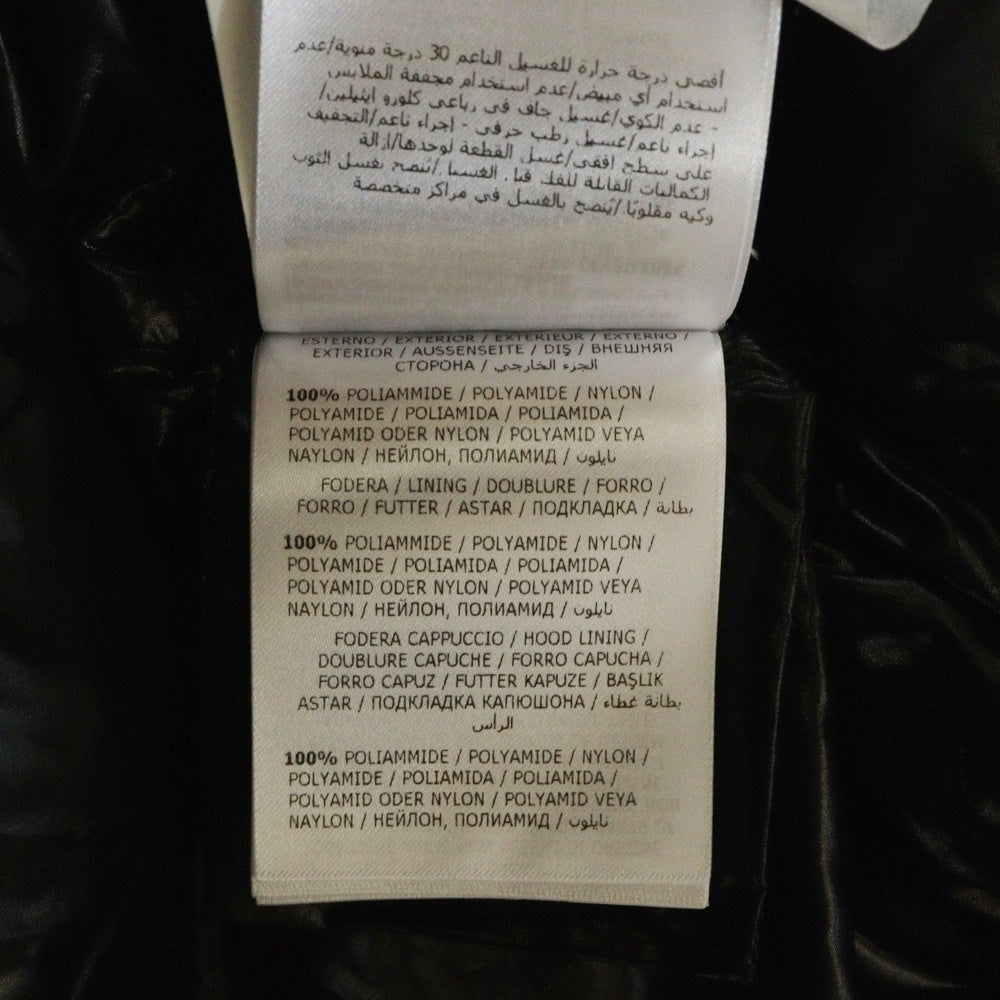 أقصى درجة حرارة للغسيل الناعم 30 درجة مئوية/عدم
استخدام أي مبيض/عدم استخدام مجففة الملابس
- عدم الكوي/غسيل جاف في رباعي كلورو ايثيلين/
إجراء ناعم/غسيل رطب حرفي - إجراء ناعم/التجفيف
على سطح افقي/غسل القطعة لوحدها/إزالة
الكماليات القابلة للفك قبل الغسيل/يُنصح بغسل الثوب
وكيه مقلوبًا/يُنصح بالغسل في مراكز متخصصة
ESTERNO / EXTERIOR / EXTERIEUR / EXTERNO /
EXTERIOR / AUSSENSEITE / DIŞ / ВНЕШНЯЯ
СТОРОНА / الجزء الخارجي
100% POLIAMMIDE / POLYAMIDE / NYLON /
POLYAMIDE / POLIAMIDA / POLIAMIDA /
POLYAMID ODER NYLON / POLYAMID VEYA
NAYLON / НЕЙЛОН, ПОЛИАМИД / نايلون
FODERA / LINING / DOUBLURE / FORRO /
FORRO / FUTTER / ASTAR / ПОДКЛАДКА / بطانة
100% POLIAMMIDE / POLYAMIDE / NYLON /
POLYAMIDE / POLIAMIDA / POLIAMIDA /
POLYAMID ODER NYLON / POLYAMID VEYA
NAYLON / НЕЙЛОН, ПОЛИАМИД / نايلون
FODERA CAPPUCCIO / HOOD LINING /
DOUBLURE CAPUCHE / FORRO CAPUCHA /
FORRO CAPUZ / FUTTER KAPUZE / BAŞLIK
ASTAR / ПОДКЛАДКА КАПЮШОНА / بطانة غطاء
الرأس
100% POLIAMMIDE / POLYAMIDE / NYLON /
POLYAMIDE / POLIAMIDA / POLIAMIDA /
POLYAMID ODER NYLON / POLYAMID VEYA
NAYLON / НЕЙЛОН, ПОЛИАМИД / نايلون